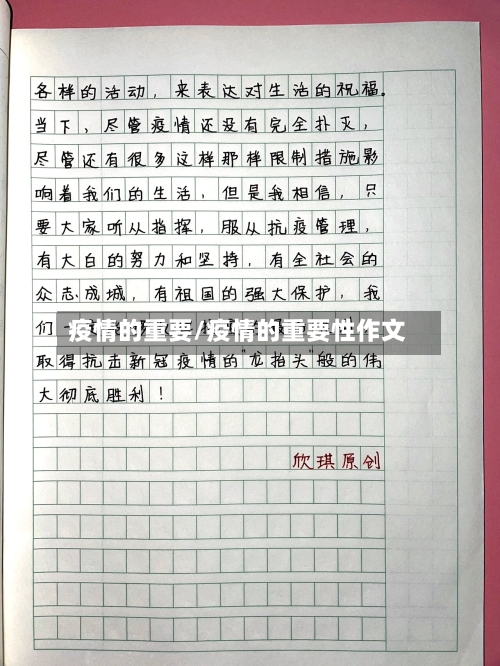 各样的活动，来表达对生活的祝福。
当下，尽管疫情还没有完全扑灭，
尽管还有很多这样那样限制措施影
响着我们的生活，但是我相信，只
要大家听从指挥，服从抗疫管理，
有大白的努力和坚持，有全社会的
众志成城，有祖国的强大保护，我
们
疫情的重要/疫情的重要性作文
取得抗击新冠疫情的"龙抬头"般的伟
大彻底胜利！
欣琪原创